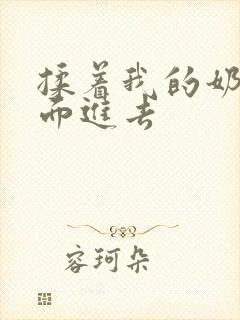 揉着我的奶
而進去
容珂朵